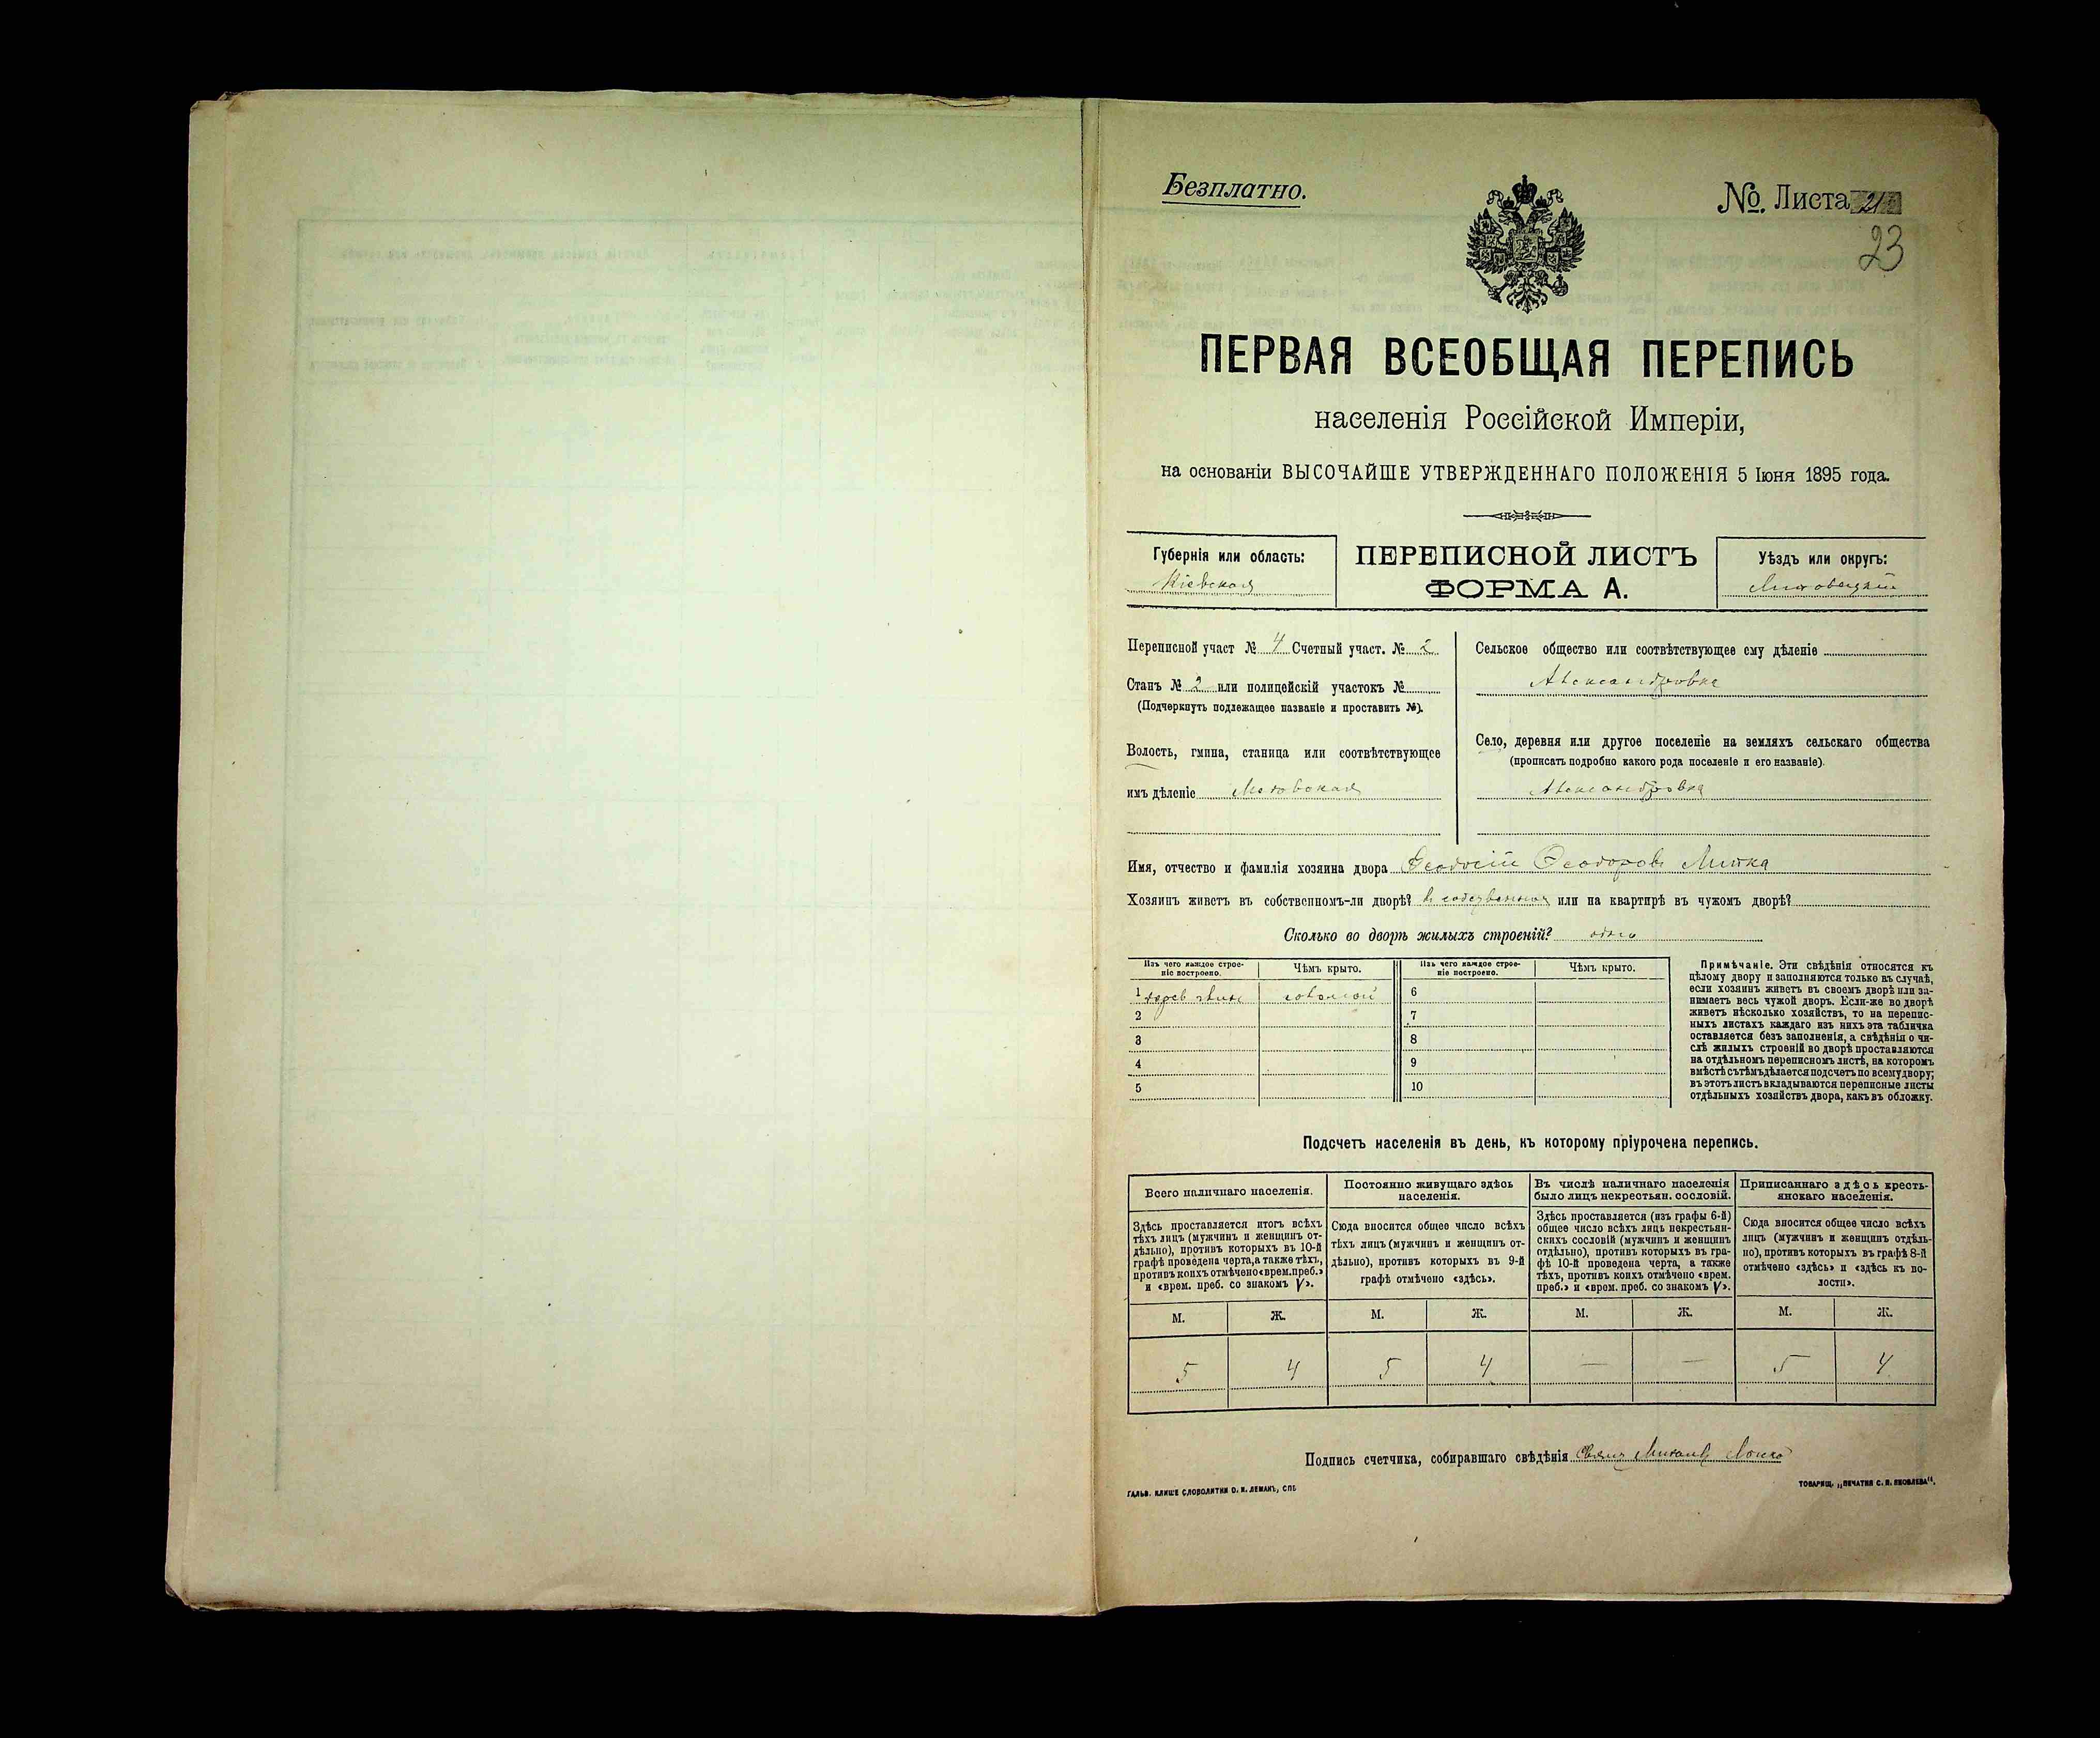 Безплатно.
№. Листа 21
23
ПЕРВАЯ ВСЕОБЩАЯ ПЕРЕПИСЬ
населенія Россійской Имперіи,
на основаніи ВЫСОЧАЙШЕ УТВЕРЖДЕННАГО ПОЛОЖЕНІЯ 5 Іюня 1895 года.
Губернія или область:
Кіевская
ПЕРЕПИСНОЙ ЛИСТЪ
ФОРМА А.
Уѣздъ или округъ:
Липовецкій
Переписной участ № 4 Счетный участ. № 2
Станъ № 2 или полицейскій участокъ №
(Подчеркнуть подлежащее названіе и проставить №).
Волость, гмина, станица или соотвѣтствующее
имъ дѣленіе
Сельское общество или соотвѣтствующее ему дѣленіе
Александровка
Село, деревня или другое поселеніе на земляхъ сельскаго общества
(прописать подробно какого рода поселеніе и его названіе).
Александровка
Имя, отчество и фамилія хозяина двора Феодосій Феодоровъ Липка
Хозяинъ живетъ въ собственномъ-ли дворѣ? в собственном или на квартирѣ въ чужомъ дворѣ?
Сколько во дворѣ жилыхъ строеній? одно
Изъ чего каждое строе-
ніе построено.
Чѣмъ крыто.
Изъ чего каждое строе-
ніе построено.
Чѣмъ крыто.
1 соломой 6
2 7
3 8
4 9
5 10
Примѣчаніе. Эти свѣдѣнія относятся къ
цѣлому двору и заполняются только въ случаѣ,
если хозяинъ живетъ въ своемъ дворѣ или за-
нимаетъ весь чужой дворъ. Если-же во дворѣ
живетъ нѣсколько хозяйствъ, то на перепис-
ныхъ листахъ каждаго изъ нихъ эта табличка
оставляется безъ заполненія, а свѣдѣнія о чи-
слѣ жилыхъ строеній во дворѣ проставляются
на отдѣльномъ переписномъ листѣ, на которомъ
вмѣстѣ съ тѣмъ дѣлается подсчетъ по всему двору;
въ этотъ листъ вкладываются переписные листы
отдѣльныхъ хозяйствъ двора, какъ въ обложку.
Подсчетъ населенія въ день, къ которому пріурочена перепись.
Всего наличнаго населенія.
Здѣсь проставляется итогъ всѣхъ
тѣхъ лицъ (мужчинъ и женщинъ от-
дѣльно), противъ которыхъ въ 10-й
графѣ проведена черта, а также тѣхъ,
противъ коихъ отмѣчено «врем. преб.»
и «врем. преб. со знакомъ V».
Постоянно живущаго здѣсь
населенія.
Сюда вносится общее число всѣхъ
тѣхъ лицъ (мужчинъ и женщинъ от-
дѣльно), противъ которыхъ въ 9-й
графѣ отмѣчено «здѣсь».
Въ числѣ наличнаго населенія
было лицъ некрестьян. сословій.
Здѣсь проставляется (изъ графы 6-й)
общее число всѣхъ лицъ некрестьян-
скихъ сословій (мужчинъ и женщинъ
отдѣльно), противъ которыхъ въ гра-
фѣ 10-й проведена черта, а также
тѣхъ, противъ коихъ отмѣчено «врем.
преб.» и «врем. преб. со знакомъ V».
Приписаннаго здѣсь кресть-
янскаго населенія.
Сюда вносится общее число всѣхъ
лицъ (мужчинъ и женщинъ отдѣль-
но), противъ которыхъ въ графѣ 8-й
отмѣчено «здѣсь» и «здѣсь къ во-
лости».
М. Ж. М. Ж. М. Ж. М. Ж.
5 4 5 4 — — 5 4
Подпись счетчика, собиравшаго свѣдѣнія
ГАЛЬВ. КЛИШЕ СЛОВОЛИТНИ О. И. ЛЕМАНЪ, СПБ
ТОВАРИЩ. „ПЕЧАТНЯ С. П. ЯКОВЛЕВА“.